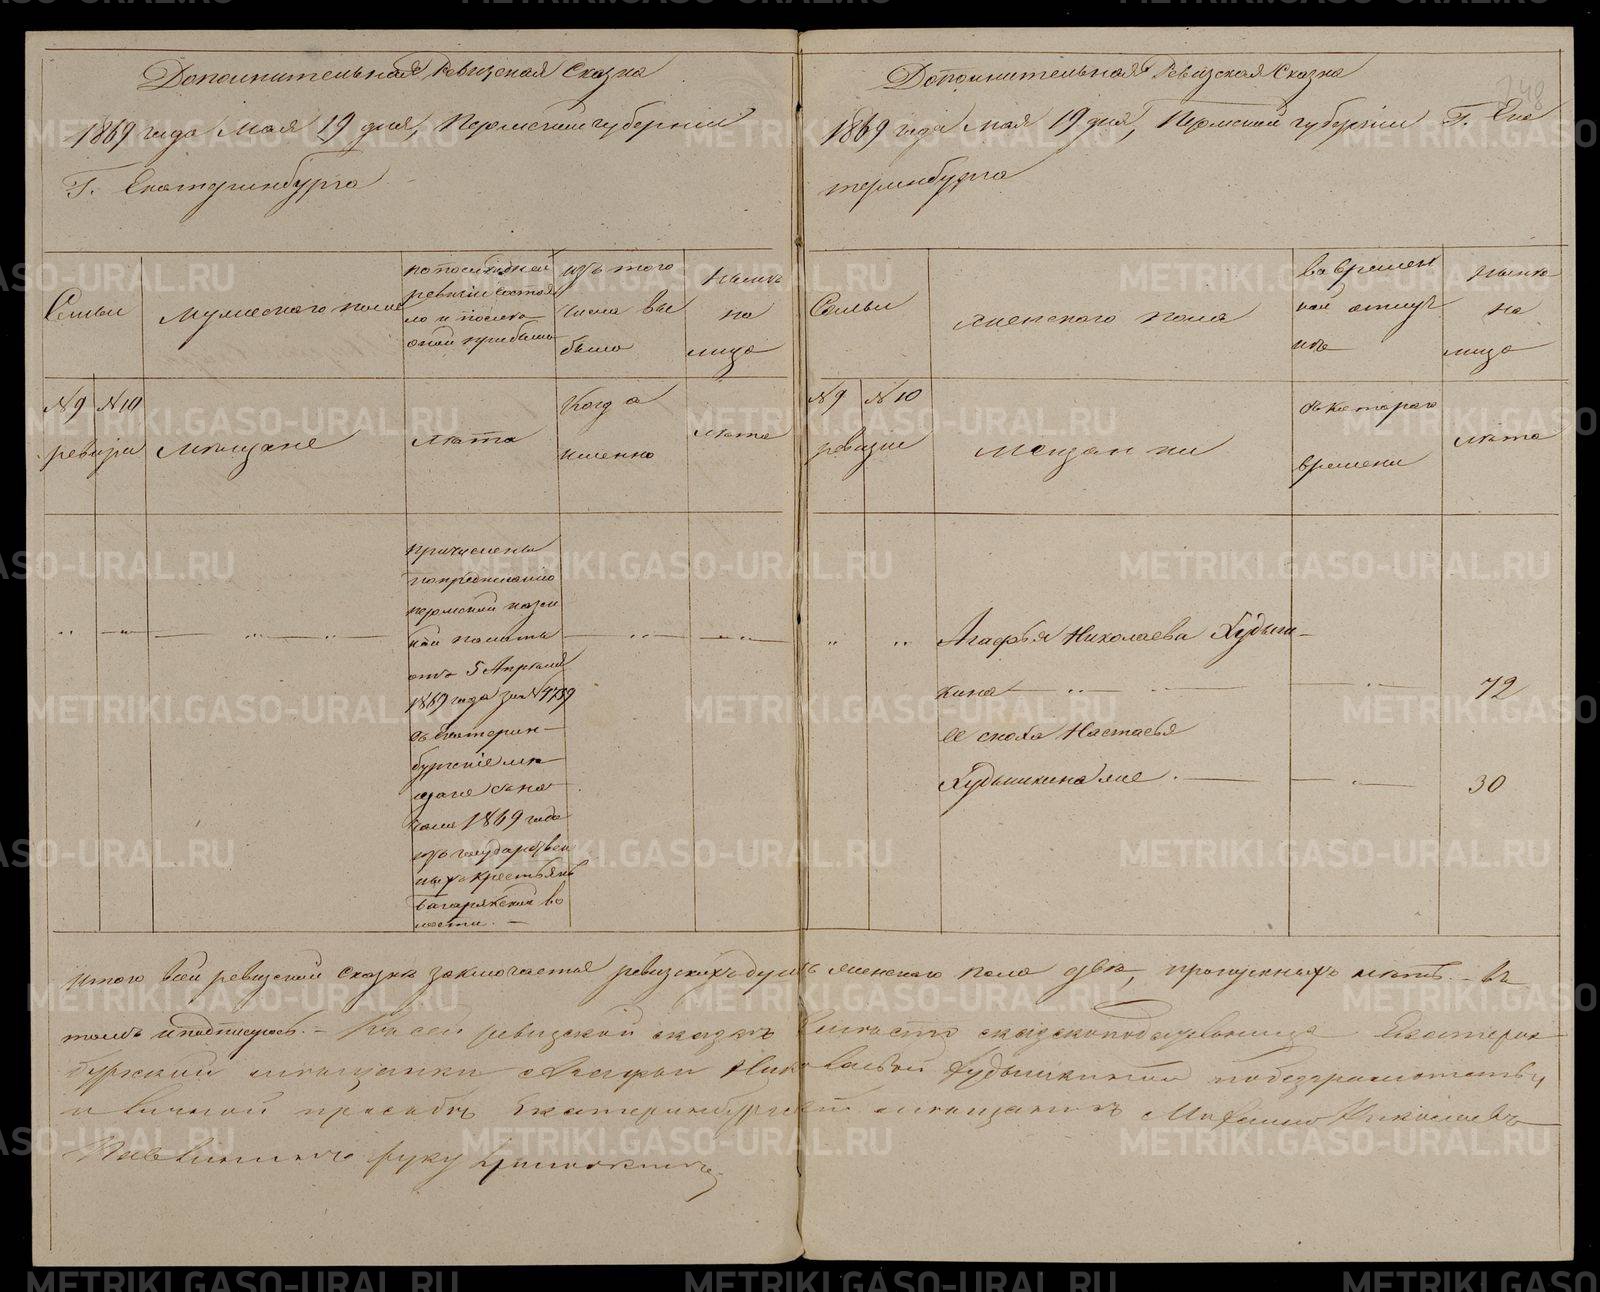 Дополнительная Ревизская Сказка
1869 года Мая 19 дня, Пермской губернии
Г. Екатеринбурга
Семьи
Мужеского пола
по последней
ревизіи состоя
ло и после
оной прибыло
изъ того
числа вы
было
Нынѣ
на
лицо
№ 9 № 10
ревизіи
Мѣщане
Лѣта
Когда
именно
Лѣта
причислены
по предписанію
пермской казен
ной палаты
отъ 5 Апрѣля
1869 года за № 4739
въ Екатерин-
бургскіе мѣ
щане съ на
чала 1869 года
изъ государствен
ныхъ крестьянъ
Багарякской во
лости. —
Дополнительная Ревизская Сказка
248
1869 года Мая 19 дня, Пермской губерніи Г. Ека
теринбурга
Семьи
Женского пола
во времен
ной отлуч
кѣ
Нынѣ
на
лицо
№ 9 № 10
ревизіи
Мещанки
съ котораго
времени
Лѣта
Агафья Николаева Худыш-
кина 72
ее сноха Настасья
Худышкина же 30
Итого всей ревизской сказкѣ заключается ревизскихъ душъ женского пола двѣ, пропускныхъ нѣтъ. въ
томъ и подписуюсь. — Къ сей ревизской сказкѣ вместо сказкоподательницы Екатерин
бургской мещанки Агафьи Николаевой Худышкиной по безграмотству
и личной просьбѣ Екатеринбургскій мещанинъ Михаило Николаевъ
руку приложилъ